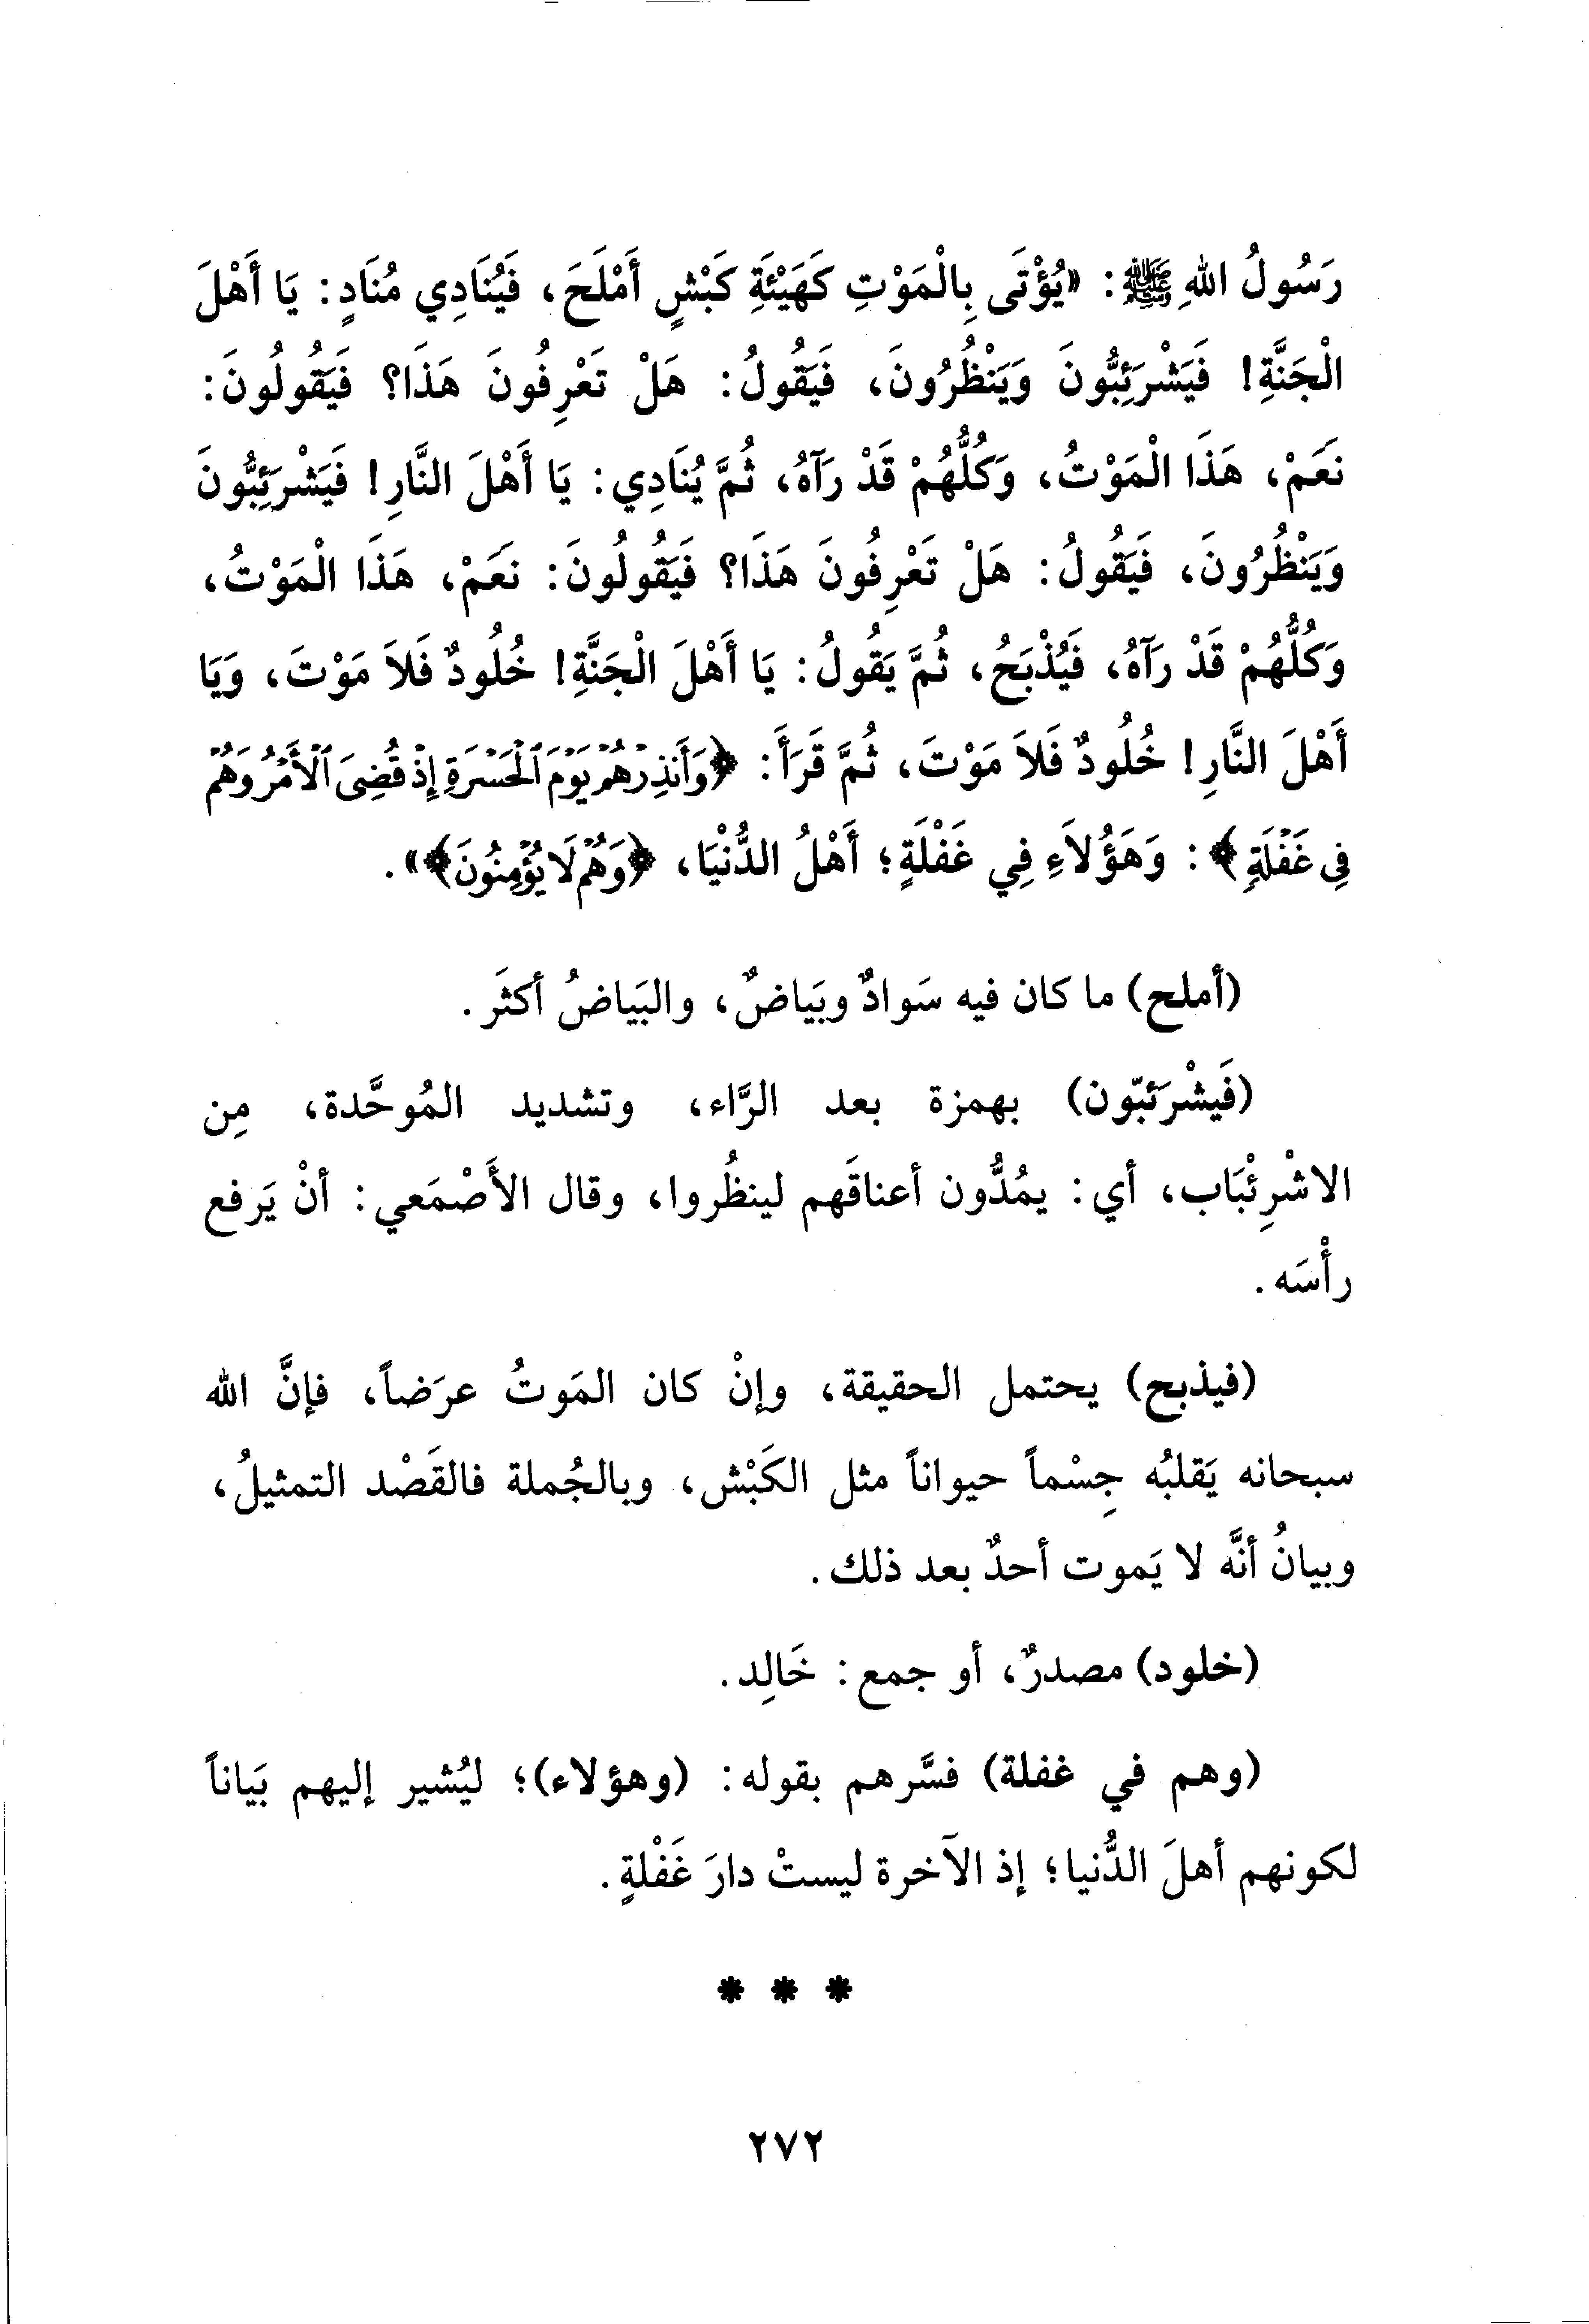 رَسُولُ اللهِ ﷺ: «يُؤْتَى بِالْمَوْتِ كَهَيْئَةِ كَبْشٍ أَمْلَحَ، فَيُنَادِي مُنَادٍ: يَا أَهْلَ
الْجَنَّةِ! فَيَشْرَئِبُّونَ وَيَنْظُرُونَ، فَيَقُولُ: هَلْ تَعْرِفُونَ هَذَا؟ فَيَقُولُونَ:
نَعَمْ، هَذَا الْمَوْتُ، وَكُلُّهُمْ قَدْ رَآهُ، ثُمَّ يُنَادِي: يَا أَهْلَ النَّارِ! فَيَشْرَئِبُّونَ
وَيَنْظُرُونَ، فَيَقُولُ: هَلْ تَعْرِفُونَ هَذَا؟ فَيَقُولُونَ: نَعَمْ، هَذَا الْمَوْتُ،
وَكُلُّهُمْ قَدْ رَآهُ، فَيُذْبَحُ، ثُمَّ يَقُولُ: يَا أَهْلَ الْجَنَّةِ! خُلُودٌ فَلاَ مَوْتَ، وَيَا
أَهْلَ النَّارِ! خُلُودٌ فَلاَ مَوْتَ، ثُمَّ قَرَأَ: ﴿وَأَنذِرْهُمْ يَوْمَ ٱلْحَسْرَةِ إِذْ قُضِىَ ٱلْأَمْرُ وَهُمْ
فِى غَفْلَةٍ﴾: وَهَؤُلاَءِ فِي غَفْلَةٍ؛ أَهْلُ الدُّنْيَا، ﴿وَهُمْ لَا يُؤْمِنُونَ﴾».
(أملح) ما كان فيه سَوادٌ وبَياضٌ، والبَياضُ أكثَر.
(فَيشْرَئبّون) بهمزة بعد الرَّاء، وتشديد المُوحَّدة، مِن
الاشْرِئْبَاب، أي: يمُدُّون أعناقَهم لينظُروا، وقال الأَصْمَعي: أنْ يَرفع
رأْسَه.
(فيذبح) يحتمل الحقيقة، وإنْ كان المَوتُ عرَضاً، فإنَّ الله
سبحانه يَقلبُه جِسْماً حيواناً مثل الكَبْش، وبالجُملة فالقَصْد التمثيلُ،
وبيانُ أنَّه لا يَموت أحدٌ بعد ذلك.
(خلود) مصدرٌ، أو جمع: خَالِد.
(وهم في غفلة) فسَّرهم بقوله: (وهؤلاء)؛ ليُشير إليهم بَياناً
لكونهم أهلَ الدُّنيا؛ إذ الآخرة ليستْ دارَ غَفْلةٍ.
* * *
٢٧٢